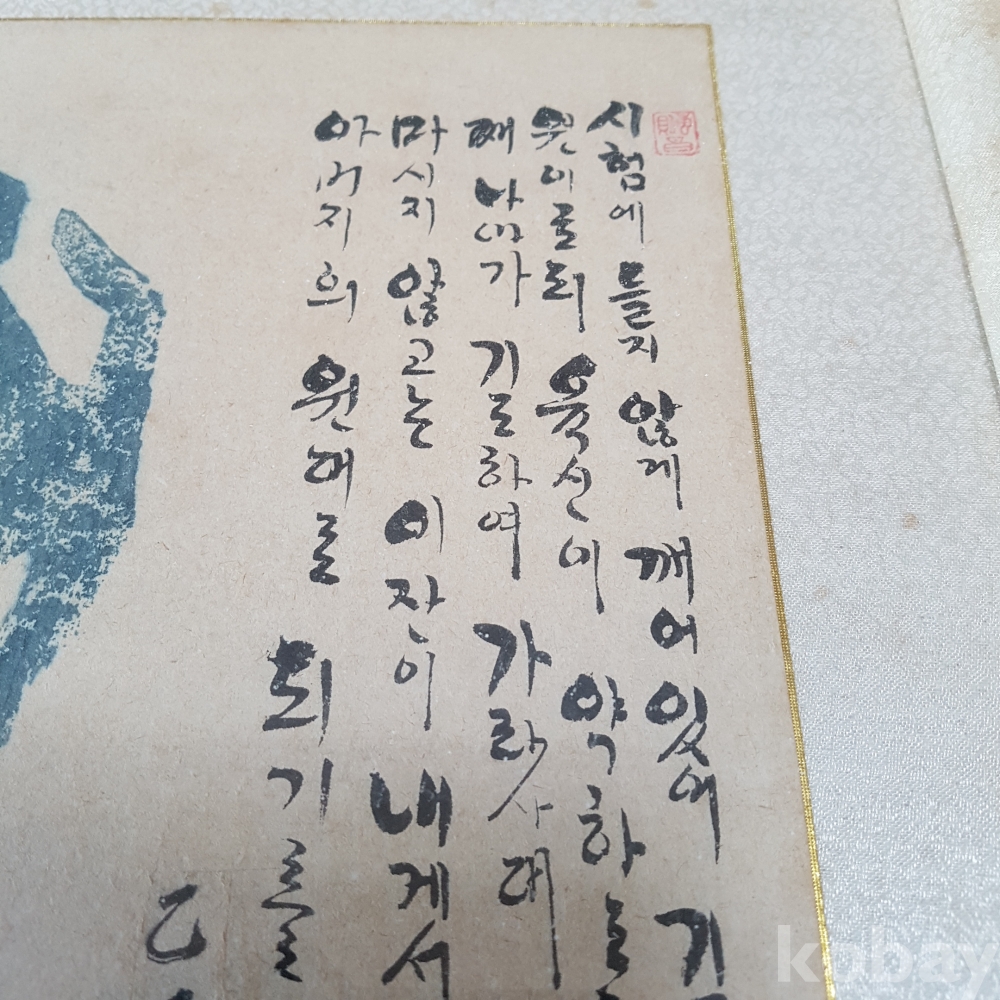 시험에 들지 않게 깨어 있어 기
원이로되 육신이 약하도
째 나아가 기도하여 가라사대
마시지 않고는 이 잔이 내게서
아버지의 원대로 되기를
乙
kobay